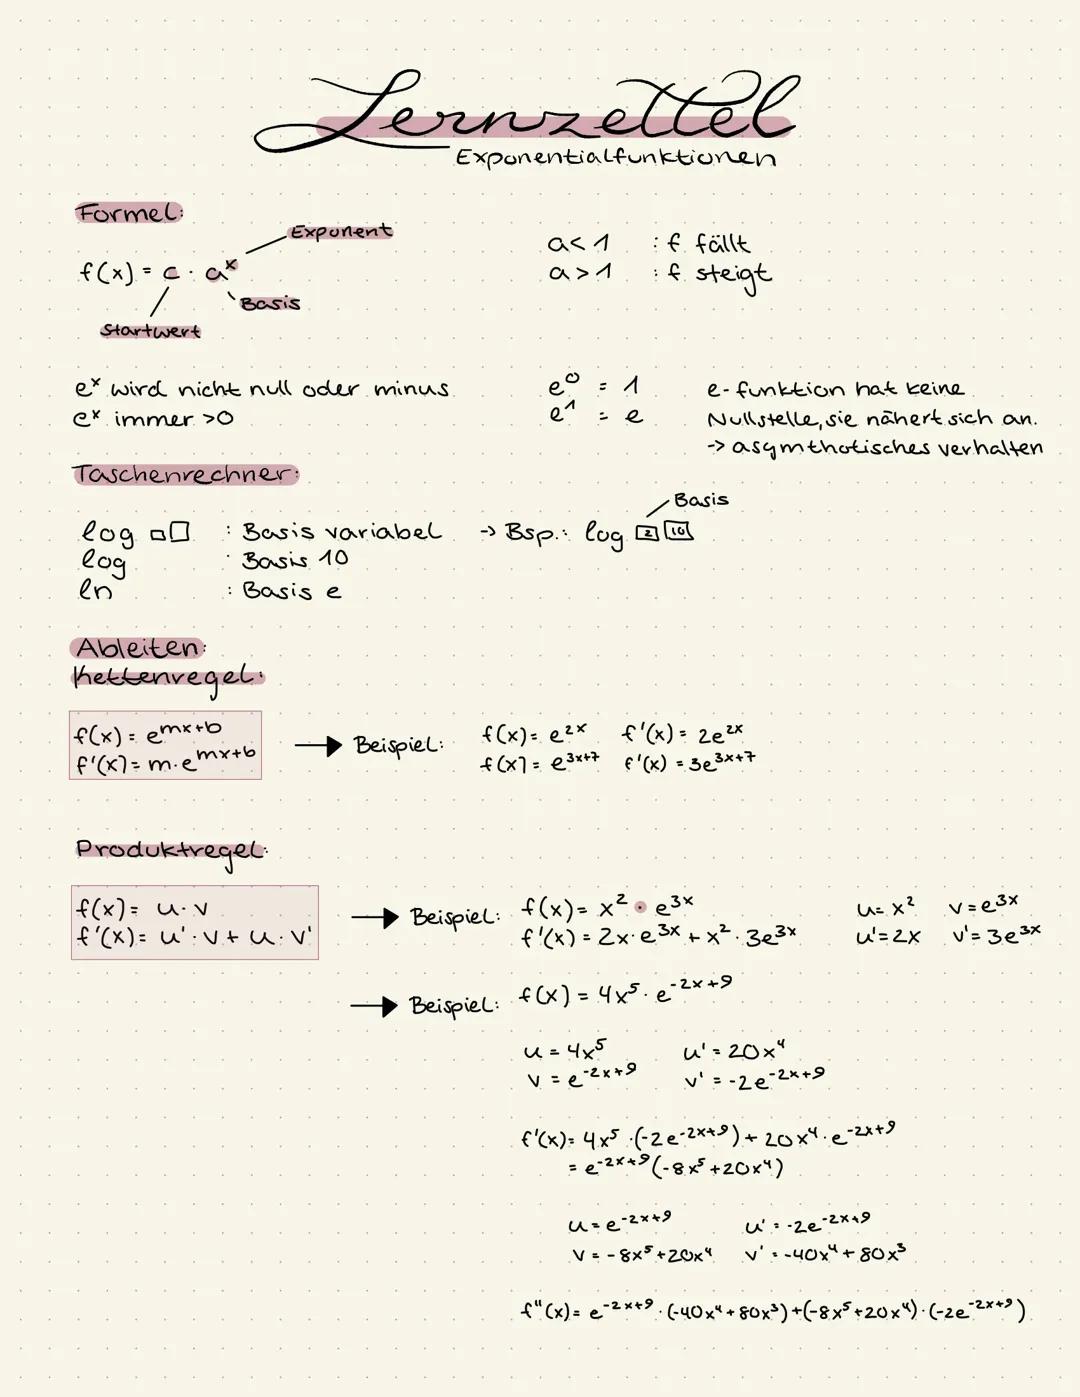 Lernzettel
Exponentialfunktionen
Formel:
Exponent
f(x) = c · aˣ
Basis
Startwert
a < 1 : f fällt
a > 1 : f steigt
eˣ wird nicht null oder minus
eˣ immer >0
e⁰ = 1
e¹ = e
e-funktion hat keine
Nullstelle, sie nähert sich an.
-> asymthotisches verhalten
Taschenrechner:
log □□ : Basis variabel -> Bsp.: log 2 10
Basis
log : Basis 10
ln : Basis e
Ableiten:
Kettenregel:
f(x) = e^mx+b
f'(x) = m·e^mx+b
→ Beispiel:
f(x) = e^2x f'(x) = 2e^2x
f(x) = e^3x+7 f'(x) = 3e^3x+7
Produktregel:
f(x) = u·v
f'(x) = u'·v + u·v'
→ Beispiel: f(x) = x² · e^3x
f'(x) = 2x·e^3x + x²·3e^3x
u = x² v = e^3x
u' = 2x v' = 3e^3x
→ Beispiel: f(x) = 4x⁵ · e^-2x+9
u = 4x⁵ u' = 20x⁴
v = e^-2x+9 v' = -2e^-2x+9
f'(x) = 4x⁵ · (-2e^-2x+9) + 20x⁴ · e^-2x+9
= e^-2x+9 (-8x⁵ + 20x⁴)
u = e^-2x+9 u' = -2e^-2x+9
v = -8x⁵ + 20x⁴ v' = -40x⁴ + 80x³
f''(x) = e^-2x+9 · (-40x⁴ + 80x³) + (-8x⁵ + 20x⁴) · (-2e^-2x+9)